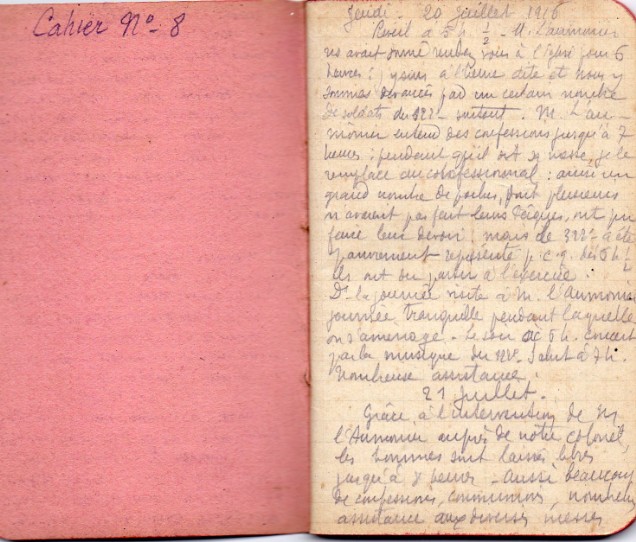 Cahier No. 8
Jeudi - 20 Juillet 1916
Réveil à 5 h 1/2 - M. L'aumonier
ns avait donné rendez vous à l'église pour 6
heures : j'y suis à l'heure dite et nous y
sommes devancés par un certain nombre
de soldats du surtout. M. L'au-
mônier entend des confessions jusqu'à 7
heures : pendant qu'il dit sa messe, je le
remplace au confessionnal : ainsi un
grand nombre de poilus, dont plusieurs
n'avaient pas fait leurs Pâques, ont pu
faire leur devoir mais le 322e a été
pauvrement représenté p. c. q. dès 5 h 1/2
ils ont dû partir à l'exercice.
Ds la journée visite à M. l'Aumonier
journée tranquille pendant laquelle
on s'aménage - Le soir à 5 h. concert
par la musique du 322e Salut à 7 h.
Nombreuse assistance.
21 Juillet.
Grâce à l'intervention de M
l'Aumonier auprès de notre colonel,
les hommes sont laissés libres
jusqu'à 8 heures - aussi beaucoup
de confessions, communions, nombreuse
assistance aux diverses messes